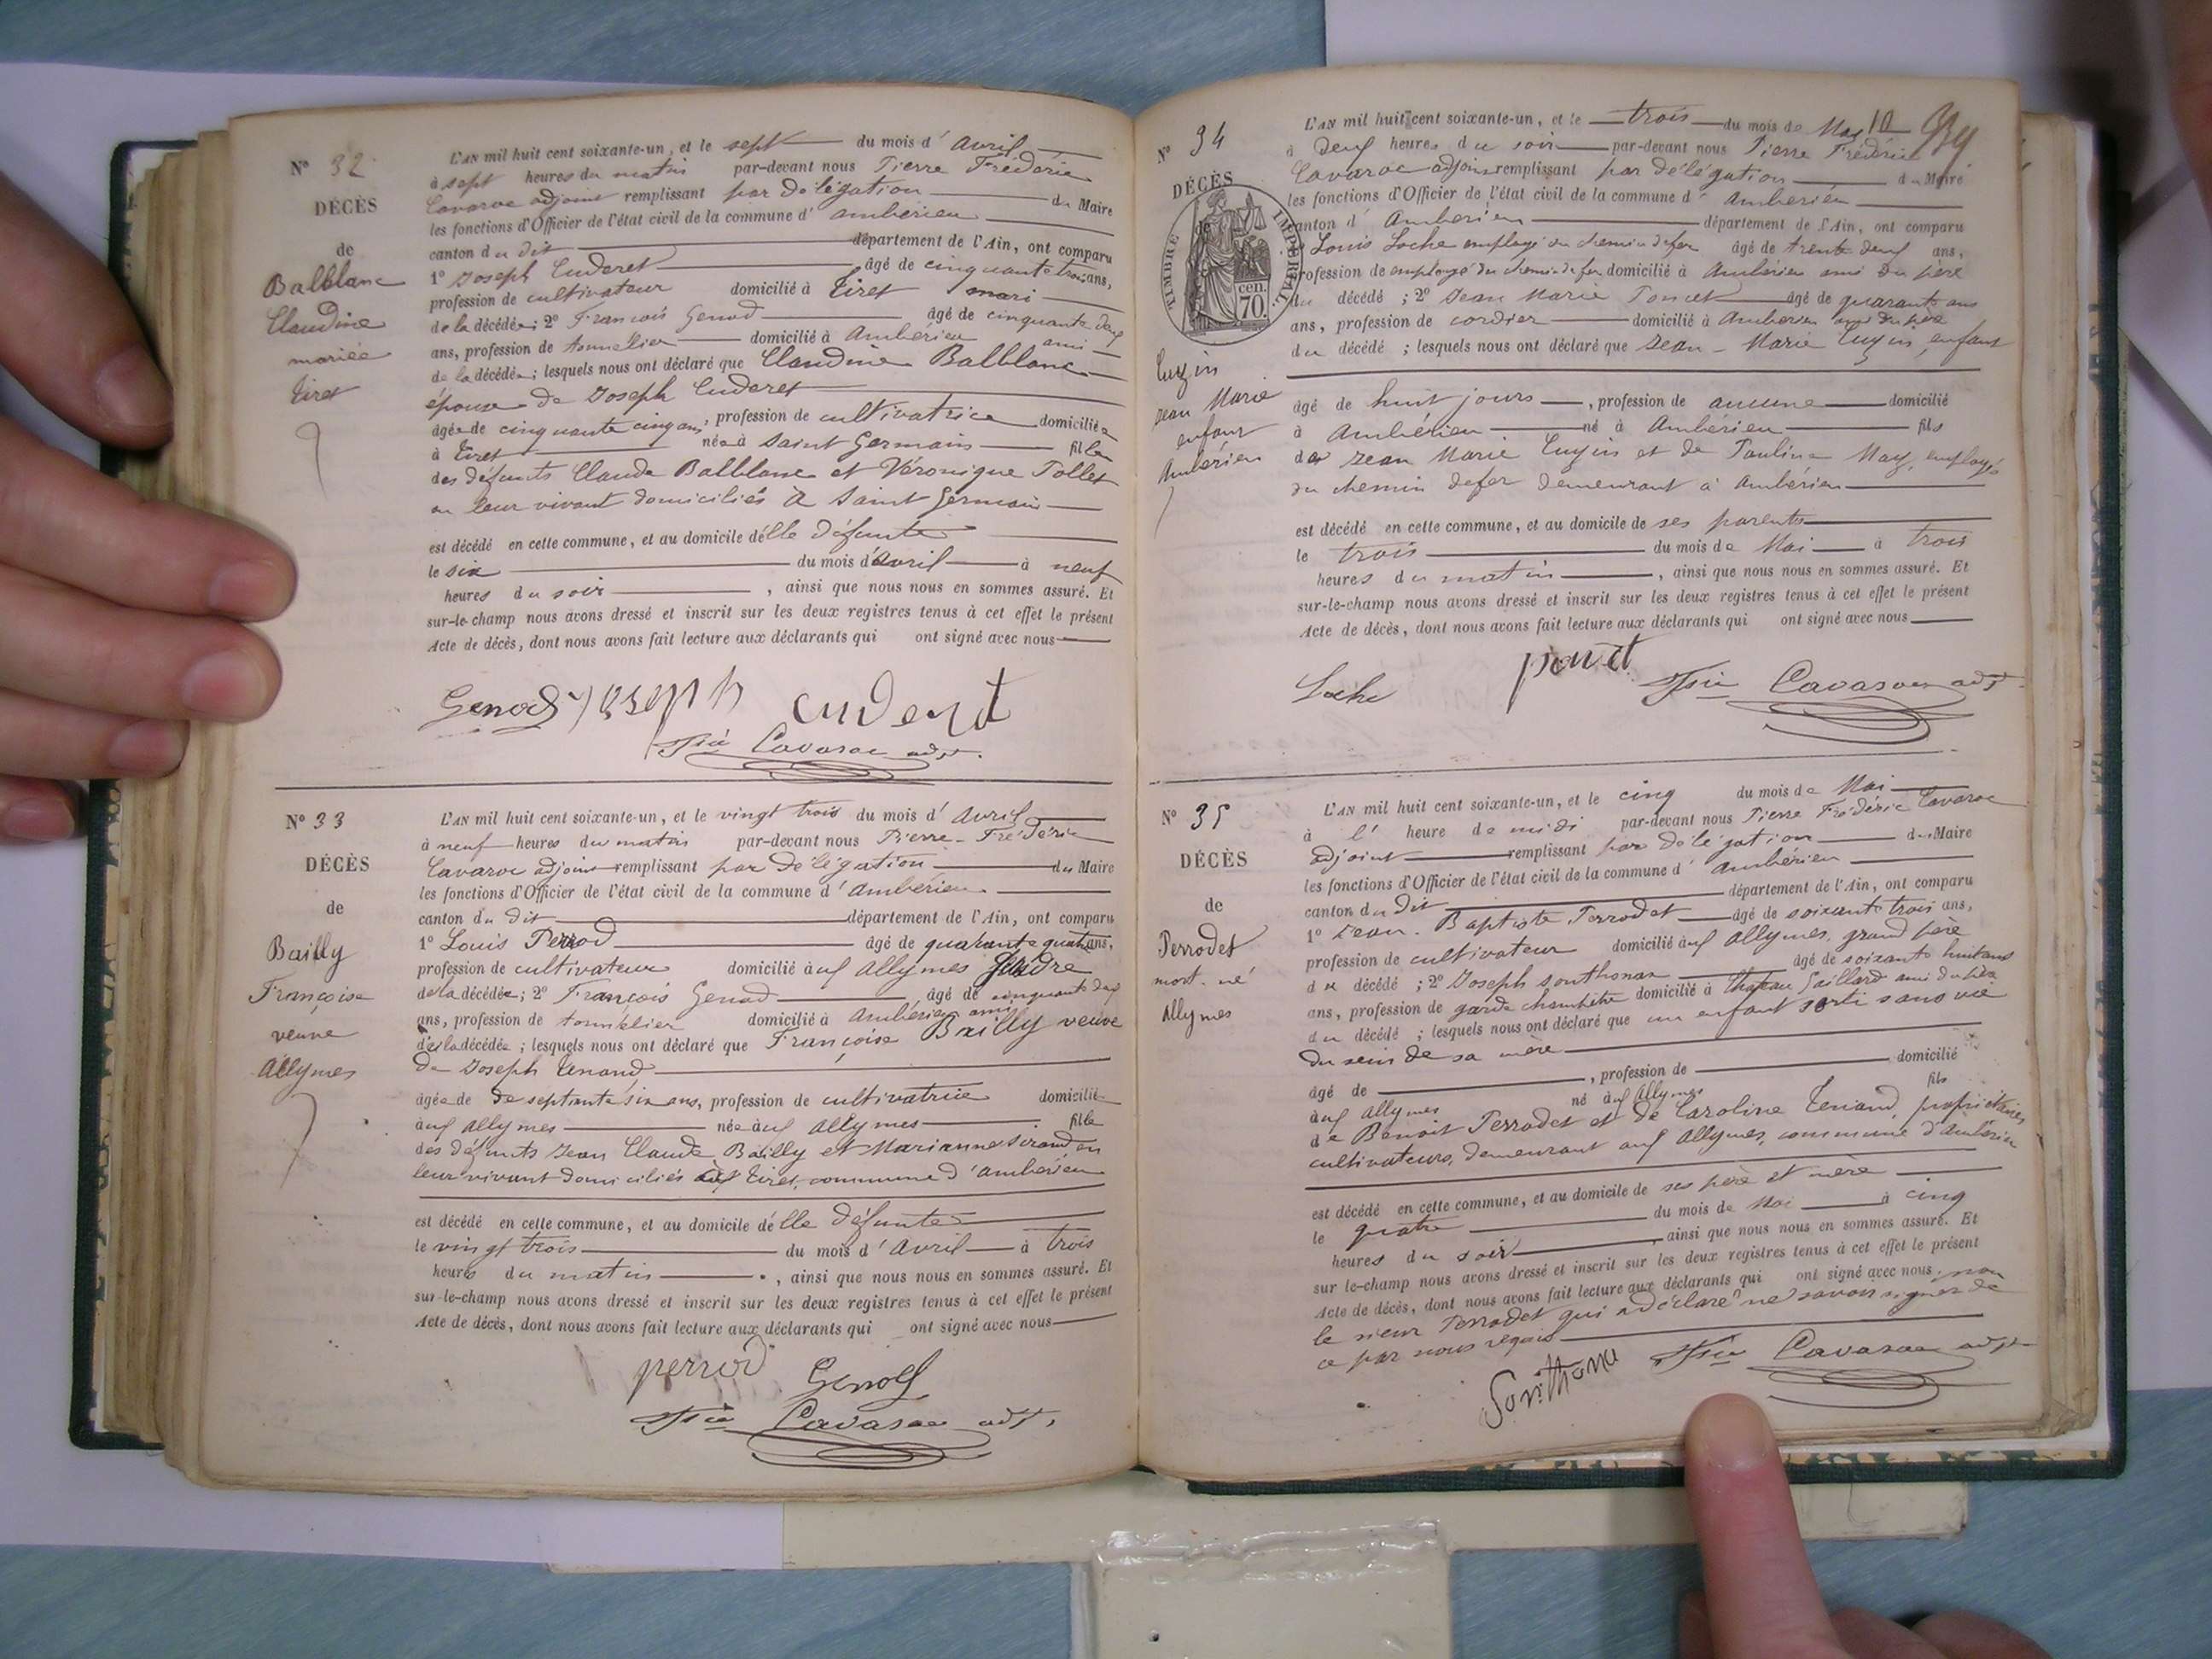 N° 32
DÉCÈS
de
Balblanc
Claudine
mariée
Tiret
L'AN mil huit cent soixante-un, et le sept du mois d'Avril
à sept heures du matin par-devant nous Pierre Frédéric
Cavaroc adjoint remplissant par délégation du Maire
les fonctions d'Officier de l'état civil de la commune d'ambérieu
canton du dit département de l'Ain, ont comparu
1° Joseph Cuderet âgé de cinquante trois ans,
profession de cultivateur domicilié à Tiret mari
de la décédée; 2° François Genod âgé de cinquante deux
ans, profession de tonnelier domicilié à Ambérieu ami
de la décédée; lesquels nous ont déclaré que Claudine Balblanc
épouse de Joseph Cuderet
âgée de cinquante cinq ans, profession de cultivatrice domiciliée
à Tiret née à Saint Germain fille
des défunts Claude Balblanc et Véronique Pollet
en leur vivant domiciliés à Saint Germain
est décédé en cette commune, et au domicile d'elle défunte
le six du mois d'Avril à neuf
heures du soir, ainsi que nous nous en sommes assuré. Et
sur-le-champ nous avons dressé et inscrit sur les deux registres tenus à cet effet le présent
Acte de décès, dont nous avons fait lecture aux déclarants qui ont signé avec nous
Genod joseph cuderet
Cavaroc adjt.
N° 33
DÉCÈS
de
Bailly
Françoise
veuve
Allymes
L'AN mil huit cent soixante-un, et le vingt trois du mois d'Avril
à neuf heures du matin par-devant nous Pierre-Frédéric
Cavaroc adjoint remplissant par délégation du Maire
les fonctions d'Officier de l'état civil de la commune d'ambérieu
canton du dit département de l'Ain, ont comparu
1° Louis Perrod âgé de quarante quatre ans,
profession de cultivateur domicilié aux Allymes gendre
de la décédée; 2° François Genod âgé de cinquante deux
ans, profession de tonnelier domicilié à Ambérieu ami
de la décédée; lesquels nous ont déclaré que Françoise Bailly veuve
de Joseph Tenand
âgée de de septante six ans, profession de cultivatrice domicilié
aux allymes née aux allymes fille
des défunts Jean Claude Bailly et Marianne Sirand en
leur vivant domiciliés aux Tiret, commune d'ambérieu
est décédé en cette commune, et au domicile d'elle défunte
le vingt trois du mois d'Avril à trois
heures du matin, ainsi que nous nous en sommes assuré. Et
sur-le-champ nous avons dressé et inscrit sur les deux registres tenus à cet effet le présent
Acte de décès, dont nous avons fait lecture aux déclarants qui ont signé avec nous
perrod Genod
Cavaroc adjt.
10
N° 34
DÉCÈS
de
TIMBRE IMPÉRIAL
70 cen.
Cuzin
Jean Marie
enfant
Ambérieu
L'AN mil huit cent soixante-un, et le trois du mois de May
à deux heures du soir par-devant nous Pierre Frédéric
Cavaroc adjoint remplissant par délégation du Maire
les fonctions d'Officier de l'état civil de la commune d'Ambérieu
canton d'Ambérieu département de l'Ain, ont comparu
1° Louis Loche employé du chemin de fer âgé de trente deux ans,
profession de employé du chemin de fer domicilié à Ambérieu ami du père
du décédé; 2° Jean Marie Poncet âgé de quarante ans
ans, profession de cordier domicilié à Ambérieu ami du père
du décédé; lesquels nous ont déclaré que Jean-Marie Cuzin, enfant
âgé de huit jours, profession de aucune domicilié
à Ambérieu né à Ambérieu fils
de Jean Marie Cuzin et de Pauline May, employé
du chemin de fer demeurant à Ambérieu
est décédé en cette commune, et au domicile de ses parents
le trois du mois de Mai à trois
heures du matin, ainsi que nous nous en sommes assuré. Et
sur-le-champ nous avons dressé et inscrit sur les deux registres tenus à cet effet le présent
Acte de décès, dont nous avons fait lecture aux déclarants qui ont signé avec nous
Loche Cavaroc adjt
N° 35
DÉCÈS
de
Perrodet
mort-né
Allymes
L'AN mil huit cent soixante-un, et le cinq du mois de Mai
à l'heure de midi par-devant nous Pierre Frédéric Cavaroc
adjoint remplissant par délégation du Maire
les fonctions d'Officier de l'état civil de la commune d'ambérieu
canton du Dit département de l'Ain, ont comparu
1° Jean-Baptiste Perrodet âgé de soixante trois ans,
profession de cultivateur domicilié aux allymes, grand père
du décédé; 2° Joseph Sonthonax âgé de soixante huit ans
ans, profession de garde champêtre domicilié à Château Gaillard ami du père
du décédé; lesquels nous ont déclaré que un enfant sorti sans vie
du sein de sa mère
âgé de, profession de domicilié
aux allymes né aux Allymes fils
de Benoit Perrodet et de Caroline Tenand, propriétaires
cultivateurs, demeurant aux Allymes, commune d'Ambérieu
est décédé en cette commune, et au domicile de ses père et mère
le quatre du mois de Mai à cinq
heures du soir, ainsi que nous nous en sommes assuré. Et
sur le-champ nous avons dressé et inscrit sur les deux registres tenus à cet effet le présent
Acte de décès, dont nous avons fait lecture aux déclarants qui ont signé avec nous, non
le sieur Perrodet qui a déclaré ne savoir signer de
ce par nous requis
Cavaroc adjt